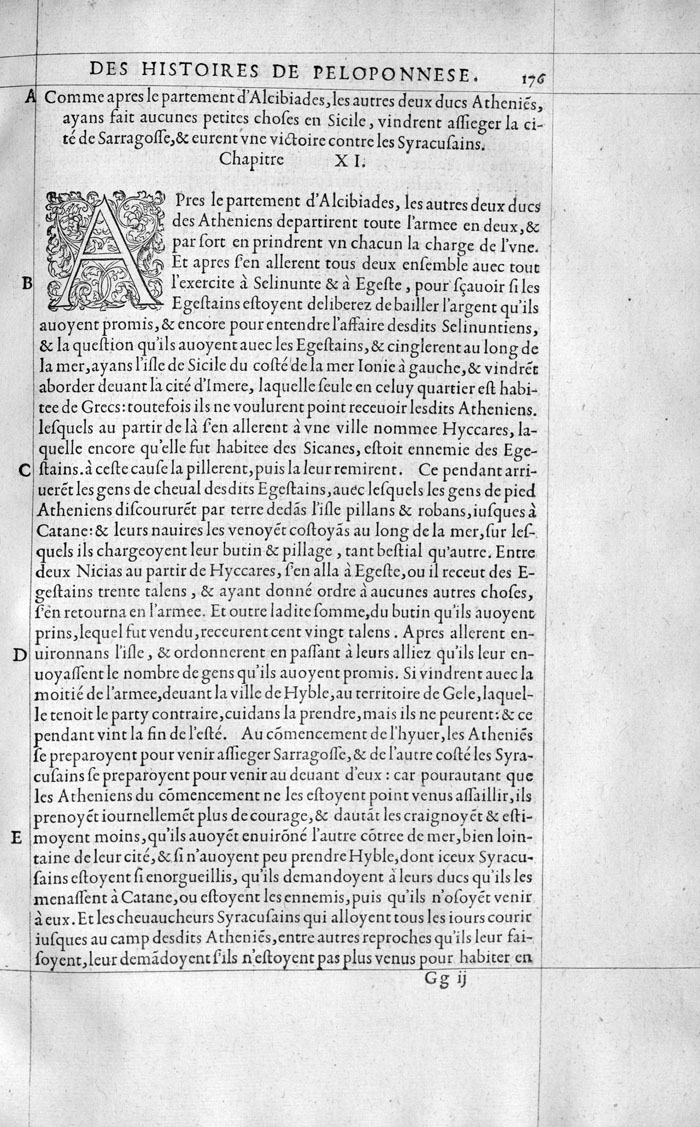 DES HISTOIRES DE PELOPONNESE. 176
A Comme apres le partement d'Alcibiades, les autres deux ducs Atheniẽs,
ayans fait aucunes petites choſes en Sicile, vindrent aſſieger la ci-
té de Sarragoſſe, & eurent vne victoire contre les Syracuſains.
Chapitre XI.
APres le partement d'Alcibiades, les autres deux ducs
des Atheniens departirent toute l'armee en deux, &
par ſort en prindrent vn chacun la charge de l'vne.
Et apres ſ'en allerent tous deux enſemble auec tout
B l'exercite à Selinunte & à Egeſte, pour ſçauoir ſi les
Egeſtains eſtoyent deliberez de bailler l'argent qu'ils
auoyent promis, & encore pour entendre l'affaire deſdits Selinuntiens,
& la queſtion qu'ils auoyent auec les Egeſtains, & cinglerent au long de
la mer, ayans l'iſle de Sicile du coſté de la mer Ionie à gauche, & vindrẽt
aborder deuant la cité d'Imere, laquelle ſeule en celuy quartier eſt habi-
tee de Grecs: toutefois ils ne voulurent point receuoir leſdits Atheniens.
leſquels au partir de là ſ'en allerent à vne ville nommee Hyccares, la-
quelle encore qu'elle fut habitee des Sicanes, eſtoit ennemie des Ege-
C ſtains. à ceſte cauſe la pillerent, puis la leur remirent. Ce pendant arri-
uerẽt les gens de cheual deſdits Egeſtains, auec leſquels les gens de pied
Atheniens diſcoururẽt par terre dedãs l'iſle pillans & robans, iuſques à
Catane: & leurs nauires les venoyẽt coſtoyãs au long de la mer, ſur leſ-
quels ils chargeoyent leur butin & pillage, tant beſtial qu'autre. Entre
deux Nicias au partir de Hyccares, ſ'en alla à Egeſte, ou il receut des E-
geſtains trente talens, & ayant donné ordre à aucunes autres choſes,
ſ'en retourna en l'armee. Et outre ladite ſomme, du butin qu'ils auoyent
prins, lequel fut vendu, receurent cent vingt talens. Apres allerent en-
D uironnans l'iſle, & ordonnerent en paſſant à leurs alliez qu'ils leur en-
uoyaſſent le nombre de gens qu'ils auoyent promis. Si vindrent auec la
moitié de l'armee, deuant la ville de Hyble, au territoire de Gele, laquel-
le tenoit le party contraire, cuidans la prendre, mais ils ne peurent: & ce
pendant vint la fin de l'eſté. Au cõmencement de l'hyuer, les Atheniẽs
ſe preparoyent pour venir aſſieger Sarragoſſe, & de l'autre coſté les Syra-
cuſains ſe preparoyent pour venir au deuant d'eux: car pourautant que
les Atheniens du cõmencement ne les eſtoyent point venus aſſaillir, ils
prenoyẽt iournellemẽt plus de courage, & dautãt les craignoyẽt & eſti-
E moyent moins, qu'ils auoyẽt enuirõné l'autre cõtree de mer, bien loin-
taine de leur cité, & ſi n'auoyent peu prendre Hyble, dont iceux Syracu-
ſains eſtoyent ſi enorgueillis, qu'ils demandoyent à leurs ducs qu'ils les
menaſſent à Catane, ou eſtoyent les ennemis, puis qu'ils n'oſoyẽt venir
à eux. Et les cheuaucheurs Syracuſains qui alloyent tous les iours courir
iuſques au camp deſdits Atheniẽs, entre autres reproches qu'ils leur fai-
ſoyent, leur demãdoyent ſ'ils n'eſtoyent pas plus venus pour habiter en
Gg ij